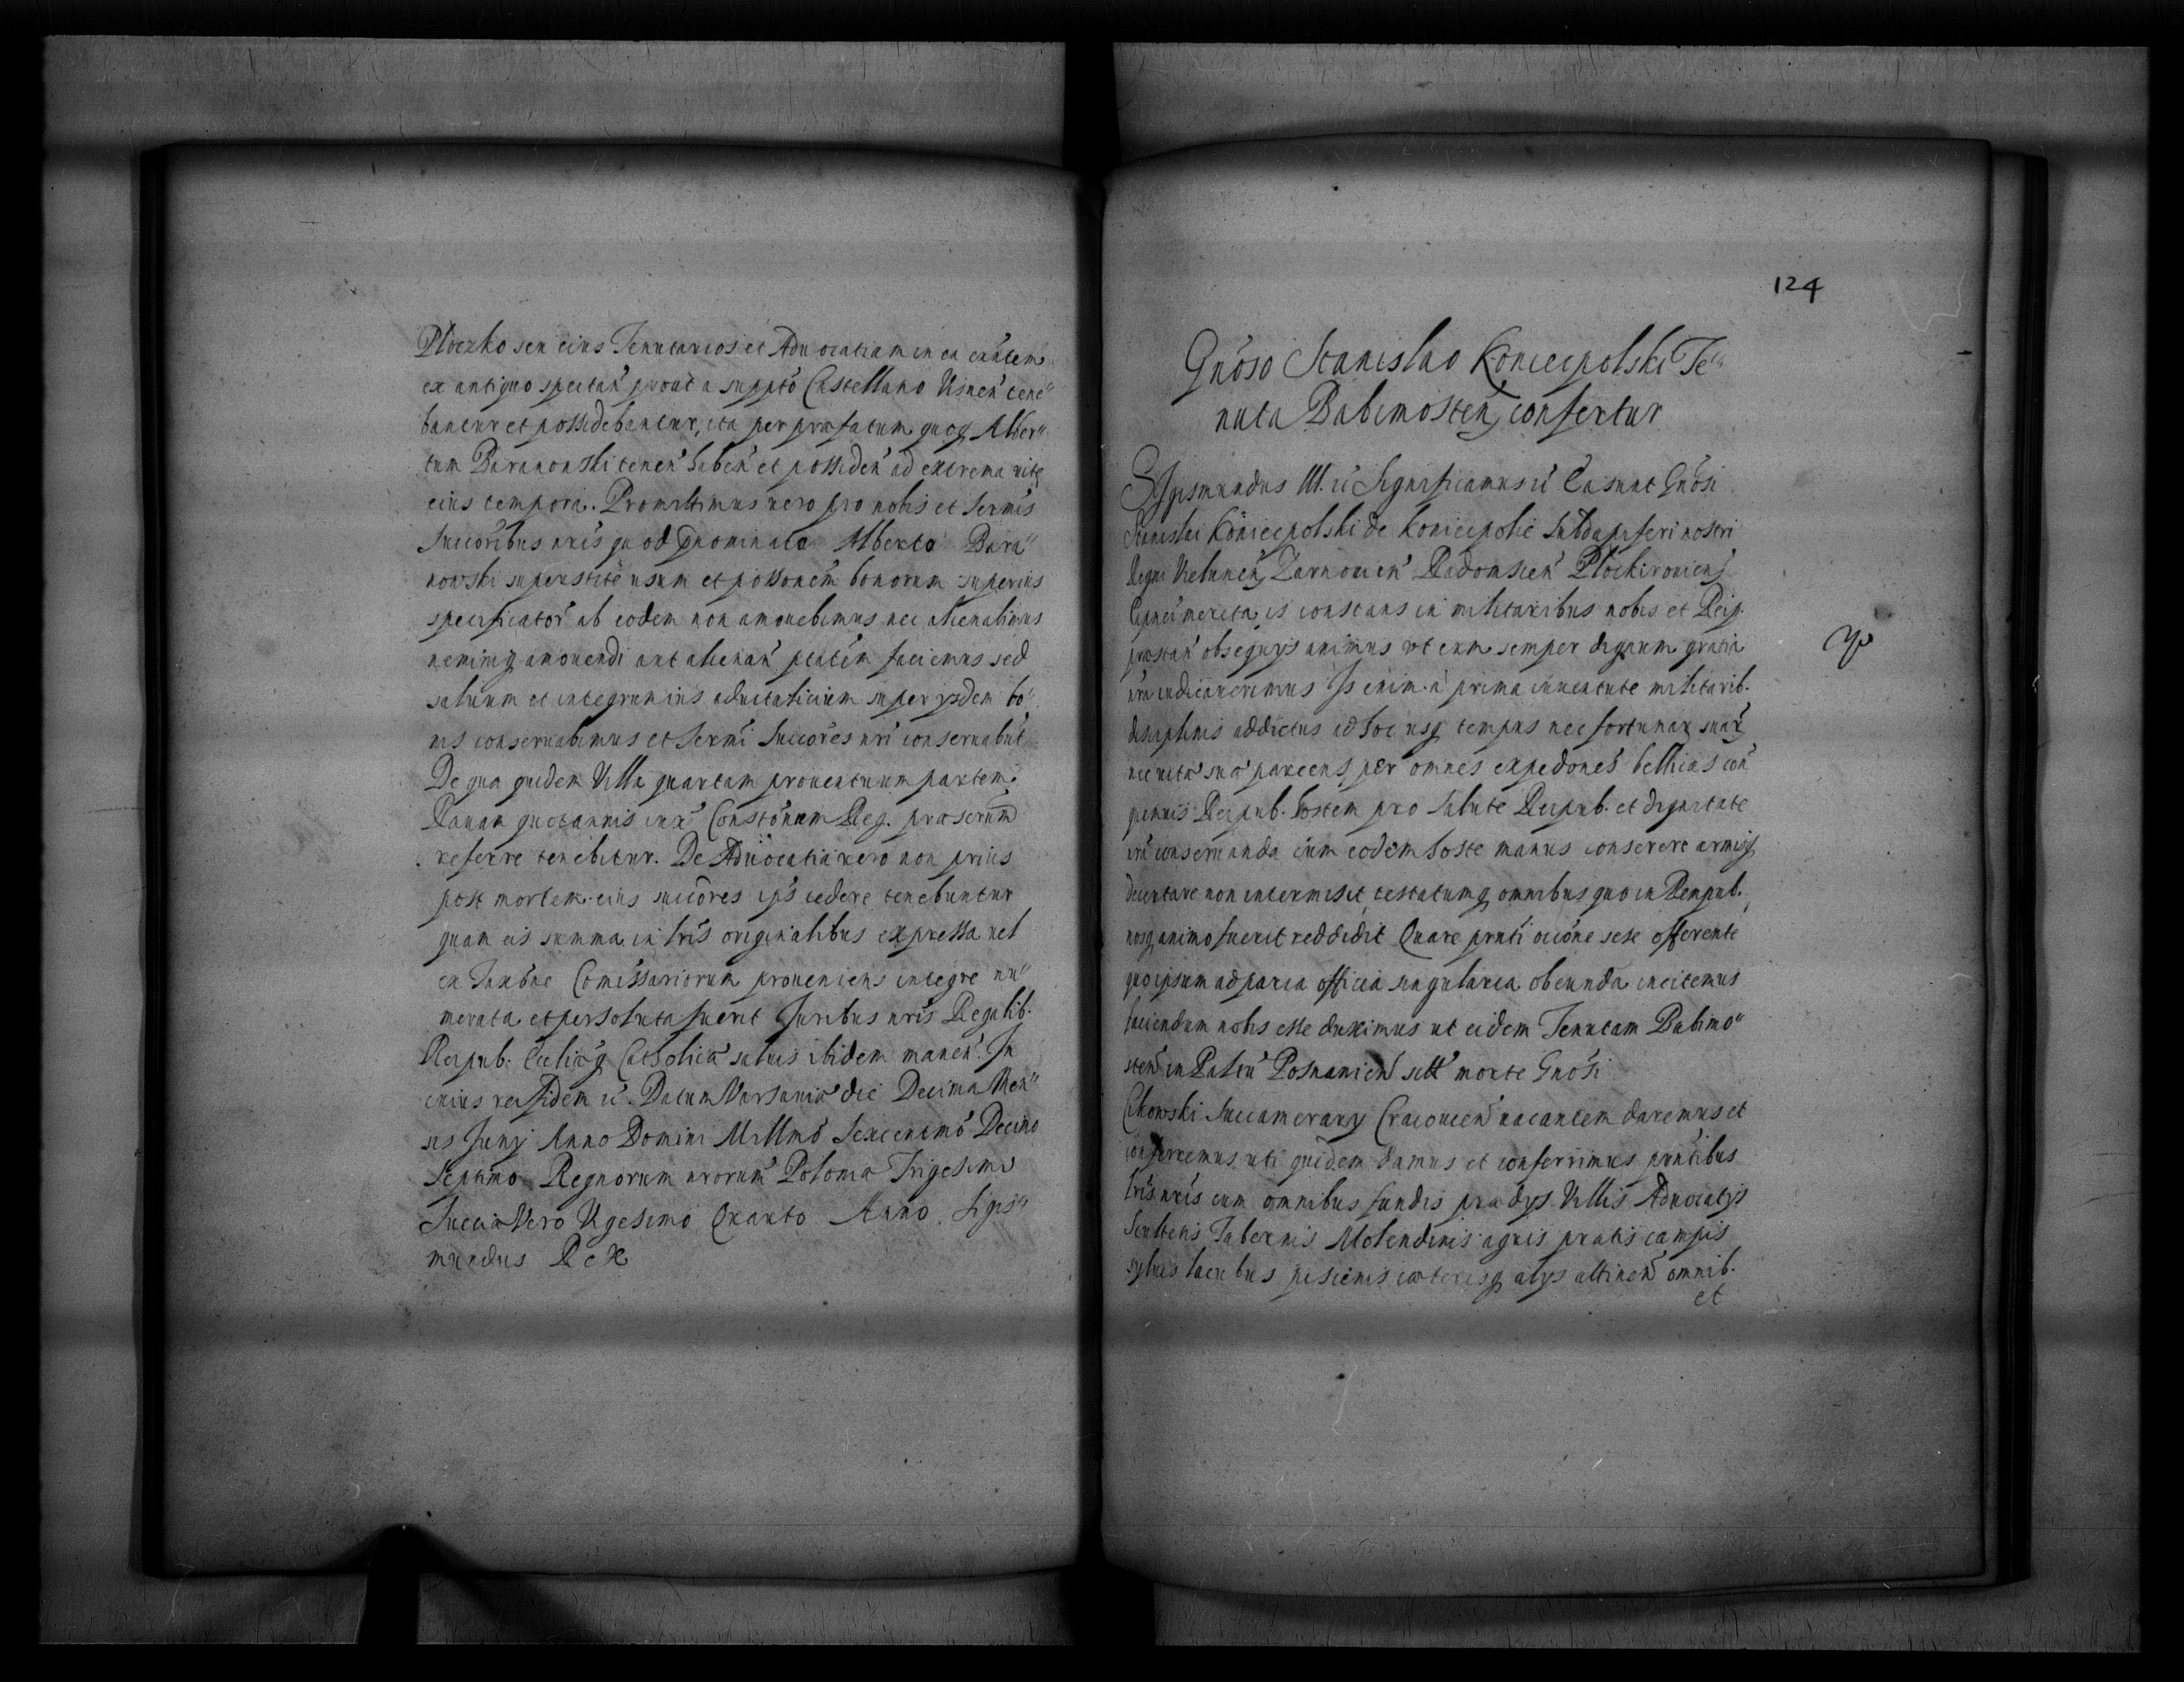 Ploczko seu eius Tenutarios et Aduocatiam in ea exñtem
ex antiquo spectañ prout a suppto Castellano Visneñ tene"
bantur et possidebantur, ita per præfatum quoq Alber"
tum Baranowski teneñ habeñ et possideñ ad extrema vitę
eius tempora. Promittimus vero pro nobis et Sermis
Succoribus nris quod Gnominato Alberto Bara"
nowski superstite usum et possonem bonorum superius
specificator ab eodem non amouebimus nec alienabimus
neminiq amouendi aut alienañ ptatem faciemus sed
saluum et integrum ius aduitalitium super ysdem bo"
nis conseruabimus et Sermi Succores nri conseruabut
De qua quidem Villa quartam prouentuum partem
Rauam quotannis iux Constonem Reg. præserum
referre tenebitur. De Aduocatia vero non prius
post mortem eius succores ips cedere tenebuntur
quam eis summa in lris originalibus expressa vel
ex Taxone Comissariorum proueniens integre nu"
merata et persoluta fuerit Juribus nris Regalib.
Reipub. Ecliæq Catholicæ saluis ibidem maneñ. In
cuius rei fidem &c. Datum Varsauiæ die Decima Men"
sis Juny Anno Domini Millmo Sexcentmo Decimo
Septimo Regnorum nrorum Poloniæ Trigesimo
Sueciæ Vero Vigesimo Quarto Anno. Sigis"
mundus Rex
124
Gnoso Stanislao Koniecpolski Te"
nuta Babimosteñ, confertur
Sigismundus III. &c Significamus &c Ea sunt Gnosi
Stanislai Koniecpolski de Koniecpolie Subdapiferi nostri
Regni Veluneñ, Zarnouieñ Radomsceñ Ploskirouieñ
Capnei merita, is constans in militaribus nobis et Reip.
præstañ obsequys animus vt eum semper dignum gratia
nra iudicauerimus Is enim a prima iuuentute militarib.
disciplinis addictus ad hoc usq tempus nec fortunar suar,
nec vitæ suæ parcens, per omnes expedones bellicas con
quemuis Reipub. hostem pro salute Reipub. et dignitate
nra conseruanda cum eodem hoste manus conserere armisq
decertare non intermisit, testatumq omnibus quo in Rempub.
nosq animo fuerit reddidit Quare pnti occone sese offerente
quo ipsum ad paria officia singularia obeunda incitemus
faciendum nobis esse duximus ut eidem Tenutam Babimo"
steñ in Paltu Posnanieñ post morte Gnosi
Cikowski Succamerary Cracouieñ vacantem daremus et
conferremus, uti quidem damus et conferimus pntibus
lris nris cum omnibus fundis prædys Villis Aduocatys
Scultetis Tabernis Molendinis agris pratis campis
syluis lacubus piscinis cæterisq alys attineñ omnib.
et